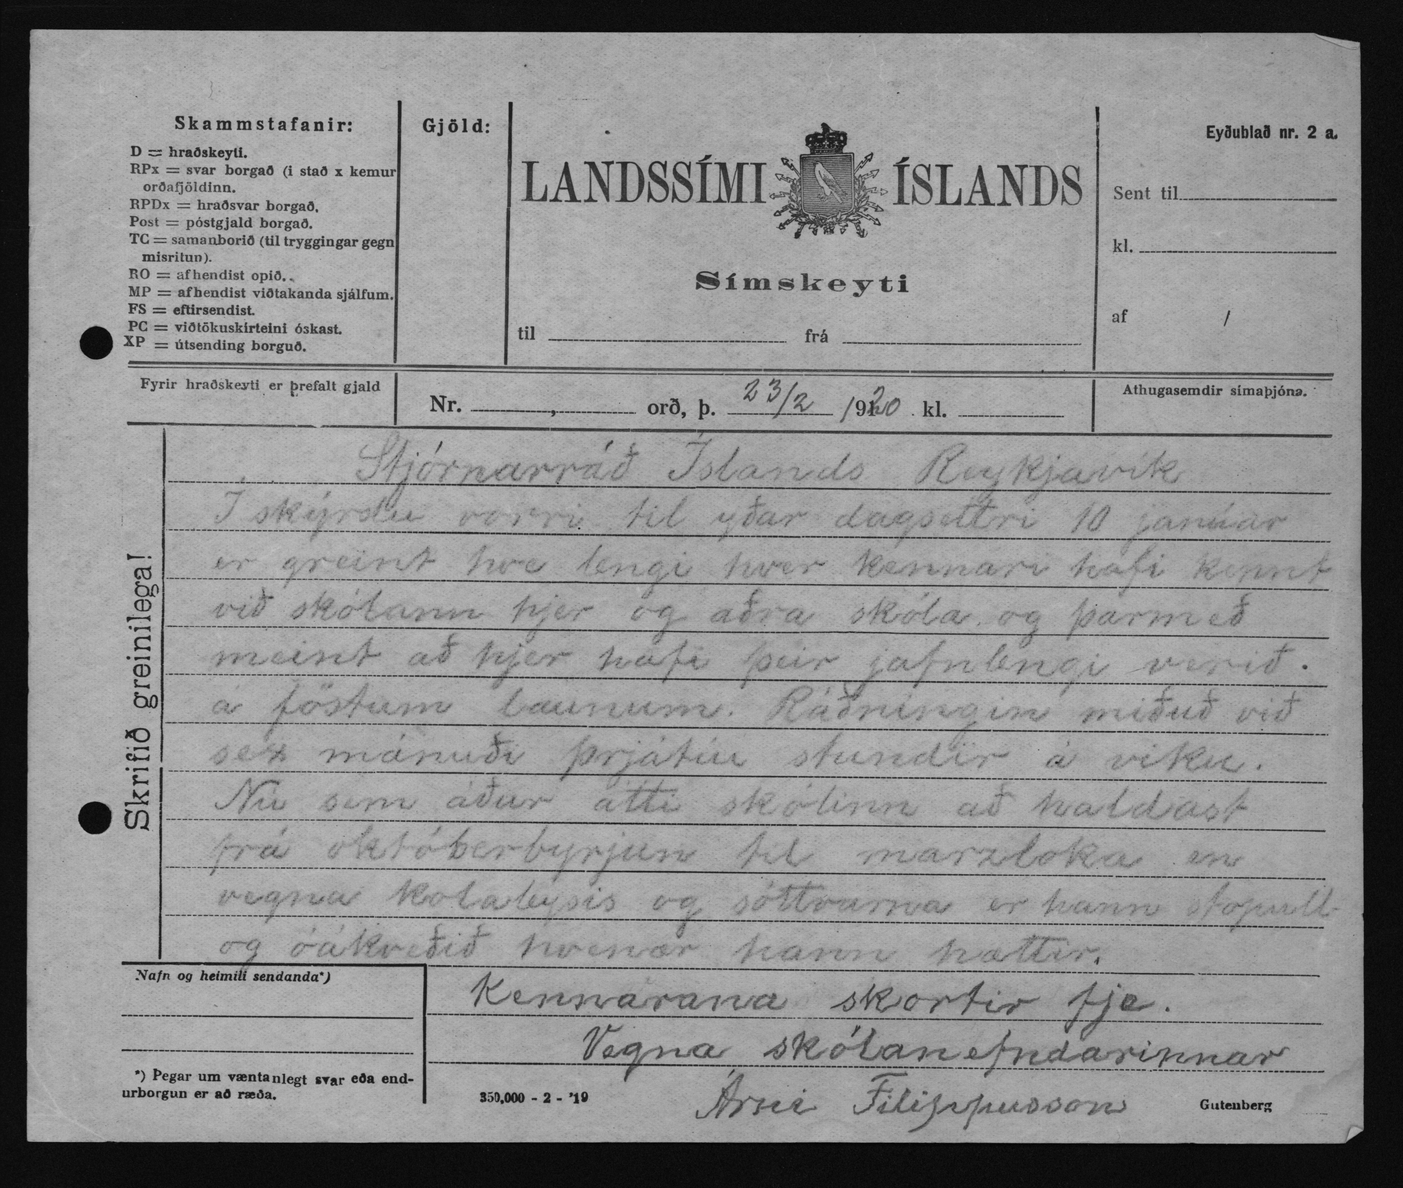 Skammstafanir:
D = hraðskeyti.
RPx = svar borgað (í stað x kemur
orðafjöldinn.
RPDx = hraðsvar borgað.
Post = póstgjald borgað.
TC = samanborið (til tryggingar gegn
misritun).
RO = afhendist opið.
MP = afhendist viðtakanda sjálfum.
FS = eftirsendist.
PC = viðtökuskírteini óskast.
XP = útsending borguð.
Gjöld:
LANDSSÍMI ÍSLANDS
Símskeyti
til frá
Eyðublað nr. 2 a.
Sent til
kl.
af /
Fyrir hraðskeyti er þrefalt gjald
Nr. , orð, þ. 23/2 1920 kl.
Athugasemdir símaþjóna.
Skrifið greinilega!
Stjórnarráð Íslands Reykjavík
Í skýrslu vorri til yðar dagsettri 10 janúar
er greint hve lengi hver kennari hafi kennt
við skólann hjer og aðra skóla og þarmeð
meint að hjer hafi þeir jafnlengi verið.
á föstum launum. Ráðningin miðuð við
sex mánuði þrjátíu stundir á viku.
Nú sem áður átti skólinn að haldast
frá októberbyrjun til marzloka en
vegna kolaleysis og sóttvarna er hann stopull
og óákveðið hvenær hann hættir.
Kennarana skortir fje.
Vegna skólanefndarinnar
Árni Filippusson
Nafn og heimili sendanda*)
*) Þegar um væntanlegt svar eða end-
urborgun er að ræða.
350,000 - 2 - '19
Gutenberg